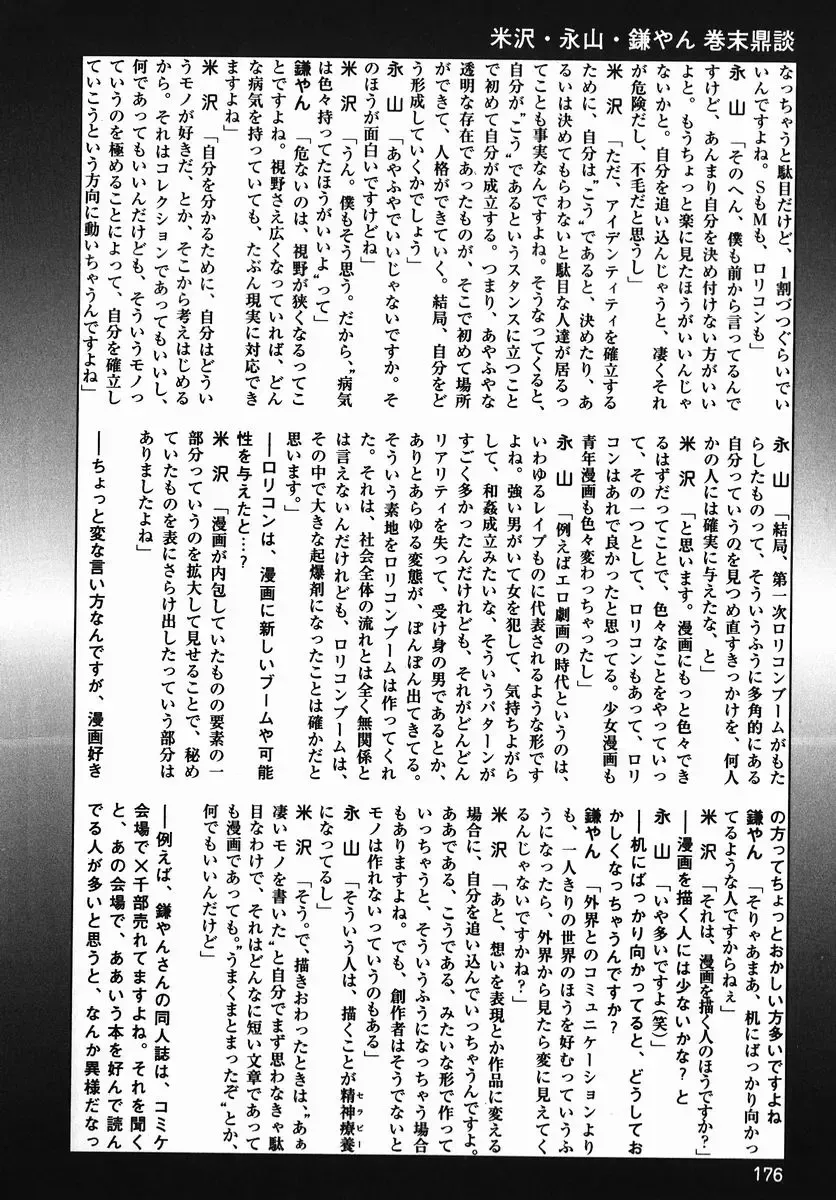 米沢・永山・鎌やん 巻末鼎談
なっちゃうと駄目だけど、1割づつぐらいでい
いんですよね。SもMも、ロリコンも」
永 山 「そのへん、僕も前から言ってるんで
すけど、あんまり自分を決め付けない方がいい
よと。もうちょっと楽に見たほうがいいんじゃ
ないかと。自分を追い込んじゃうと、凄くそれ
が危険だし、不毛だと思うし」
米 沢 「ただ、アイデンティティを確立する
ために、自分は〝こう〟であると、決めたり、あ
るいは決めてもらわないと駄目な人達が居るっ
てことも事実なんですよね。そうなってくると、
自分が〝こう〟であるというスタンスに立つこと
で初めて自分が成立する。つまり、あやふやな
透明な存在であったものが、そこで初めて場所
ができて、人格ができていく。結局、自分をど
う形成していくかでしょう」
永 山 「あやふやでいいじゃないですか。そ
のほうが面白いですけどね」
米 沢 「うん。僕もそう思う。だから、〝病気
は色々持ってたほうがいいよ〟って」
鎌やん 「危ないのは、視野が狭くなるってこ
とですよね。視野さえ広くなっていれば、どん
な病気を持っていても、たぶん現実に対応でき
ますよね」
米 沢 「自分を分かるために、自分はどうい
うモノが好きだ、とか、そこから考えはじめる
から。それはコレクションであってもいいし、
何であってもいいんだけども、そういうモノっ
ていうのを極めることによって、自分を確立し
ていこうという方向に動いちゃうんですよね」
永 山 「結局、第一次ロリコンブームがもた
らしたものって、そういうふうに多角的にある
自分っていうのを見つめ直すきっかけを、何人
かの人には確実に与えたな、と」
米 沢 「と思います。漫画にもっと色々でき
るはずだってことで、色々なことをやっていっ
て、その一つとして、ロリコンもあって、ロリ
コンはあれで良かったと思ってる。少女漫画も
青年漫画も色々変わっちゃったし」
永 山 「例えばエロ劇画の時代というのは、
いわゆるレイプものに代表されるような形です
よね。強い男がいて女を犯して、気持ちよがら
して、和姦成立みたいな、そういうパターンが
すごく多かったんだけれども、それがどんどん
リアリティを失って、受け身の男であるとか、
ありとあらゆる変態が、ぽんぽん出てきてる。
そういう素地をロリコンブームは作ってくれ
た。それは、社会全体の流れとは全く無関係と
は言えないんだけれども、ロリコンブームは、
その中で大きな起爆剤になったことは確かだと
思います。」
──ロリコンは、漫画に新しいブームや可能
性を与えたと…?
米 沢 「漫画が内包していたものの要素の一
部分っていうのを拡大して見せることで、秘め
ていたものを表にさらけ出したっていう部分は
ありましたよね」
──ちょっと変な言い方なんですが、漫画好き
の方ってちょっとおかしい方多いですよね
鎌やん 「そりゃあまあ、机にばっかり向かっ
てるような人ですからねぇ」
米 沢 「それは、漫画を描く人のほうですか?」
──漫画を描く人には少ないかな?と
永 山 「いや多いですよ(笑)」
──机にばっかり向かってると、どうしてお
かしくなっちゃうんですか?
鎌やん 「外界とのコミュニケーションより
も、一人きりの世界のほうを好むっていうふ
うになったら、外界から見たら変に見えてく
るんじゃないですかね?」
米 沢 「あと、想いを表現とか作品に変える
場合に、自分を追い込んでいっちゃうんですよ。
ああである、こうである、みたいな形で作って
いっちゃうと、そういうふうになっちゃう場合
もありますよね。でも、創作者はそうでないと
モノは作れないっていうのもある」
永 山 「そういう人は、描くことが精神療養セラピー
になってるし」
米 沢 「そう。で、描きおわったときは、〝あぁ
凄いモノを書いた〟と自分でまず思わなきゃ駄
目なわけで、それはどんなに短い文章であって
も漫画であっても。〝うまくまとまったぞ〟とか、
何でもいいんだけど」
──例えば、鎌やんさんの同人誌は、コミケ
会場で×千部売れてますよね。それを聞く
と、あの会場で、ああいう本を好んで読ん
でる人が多いと思うと、なんか異様だなっ
176